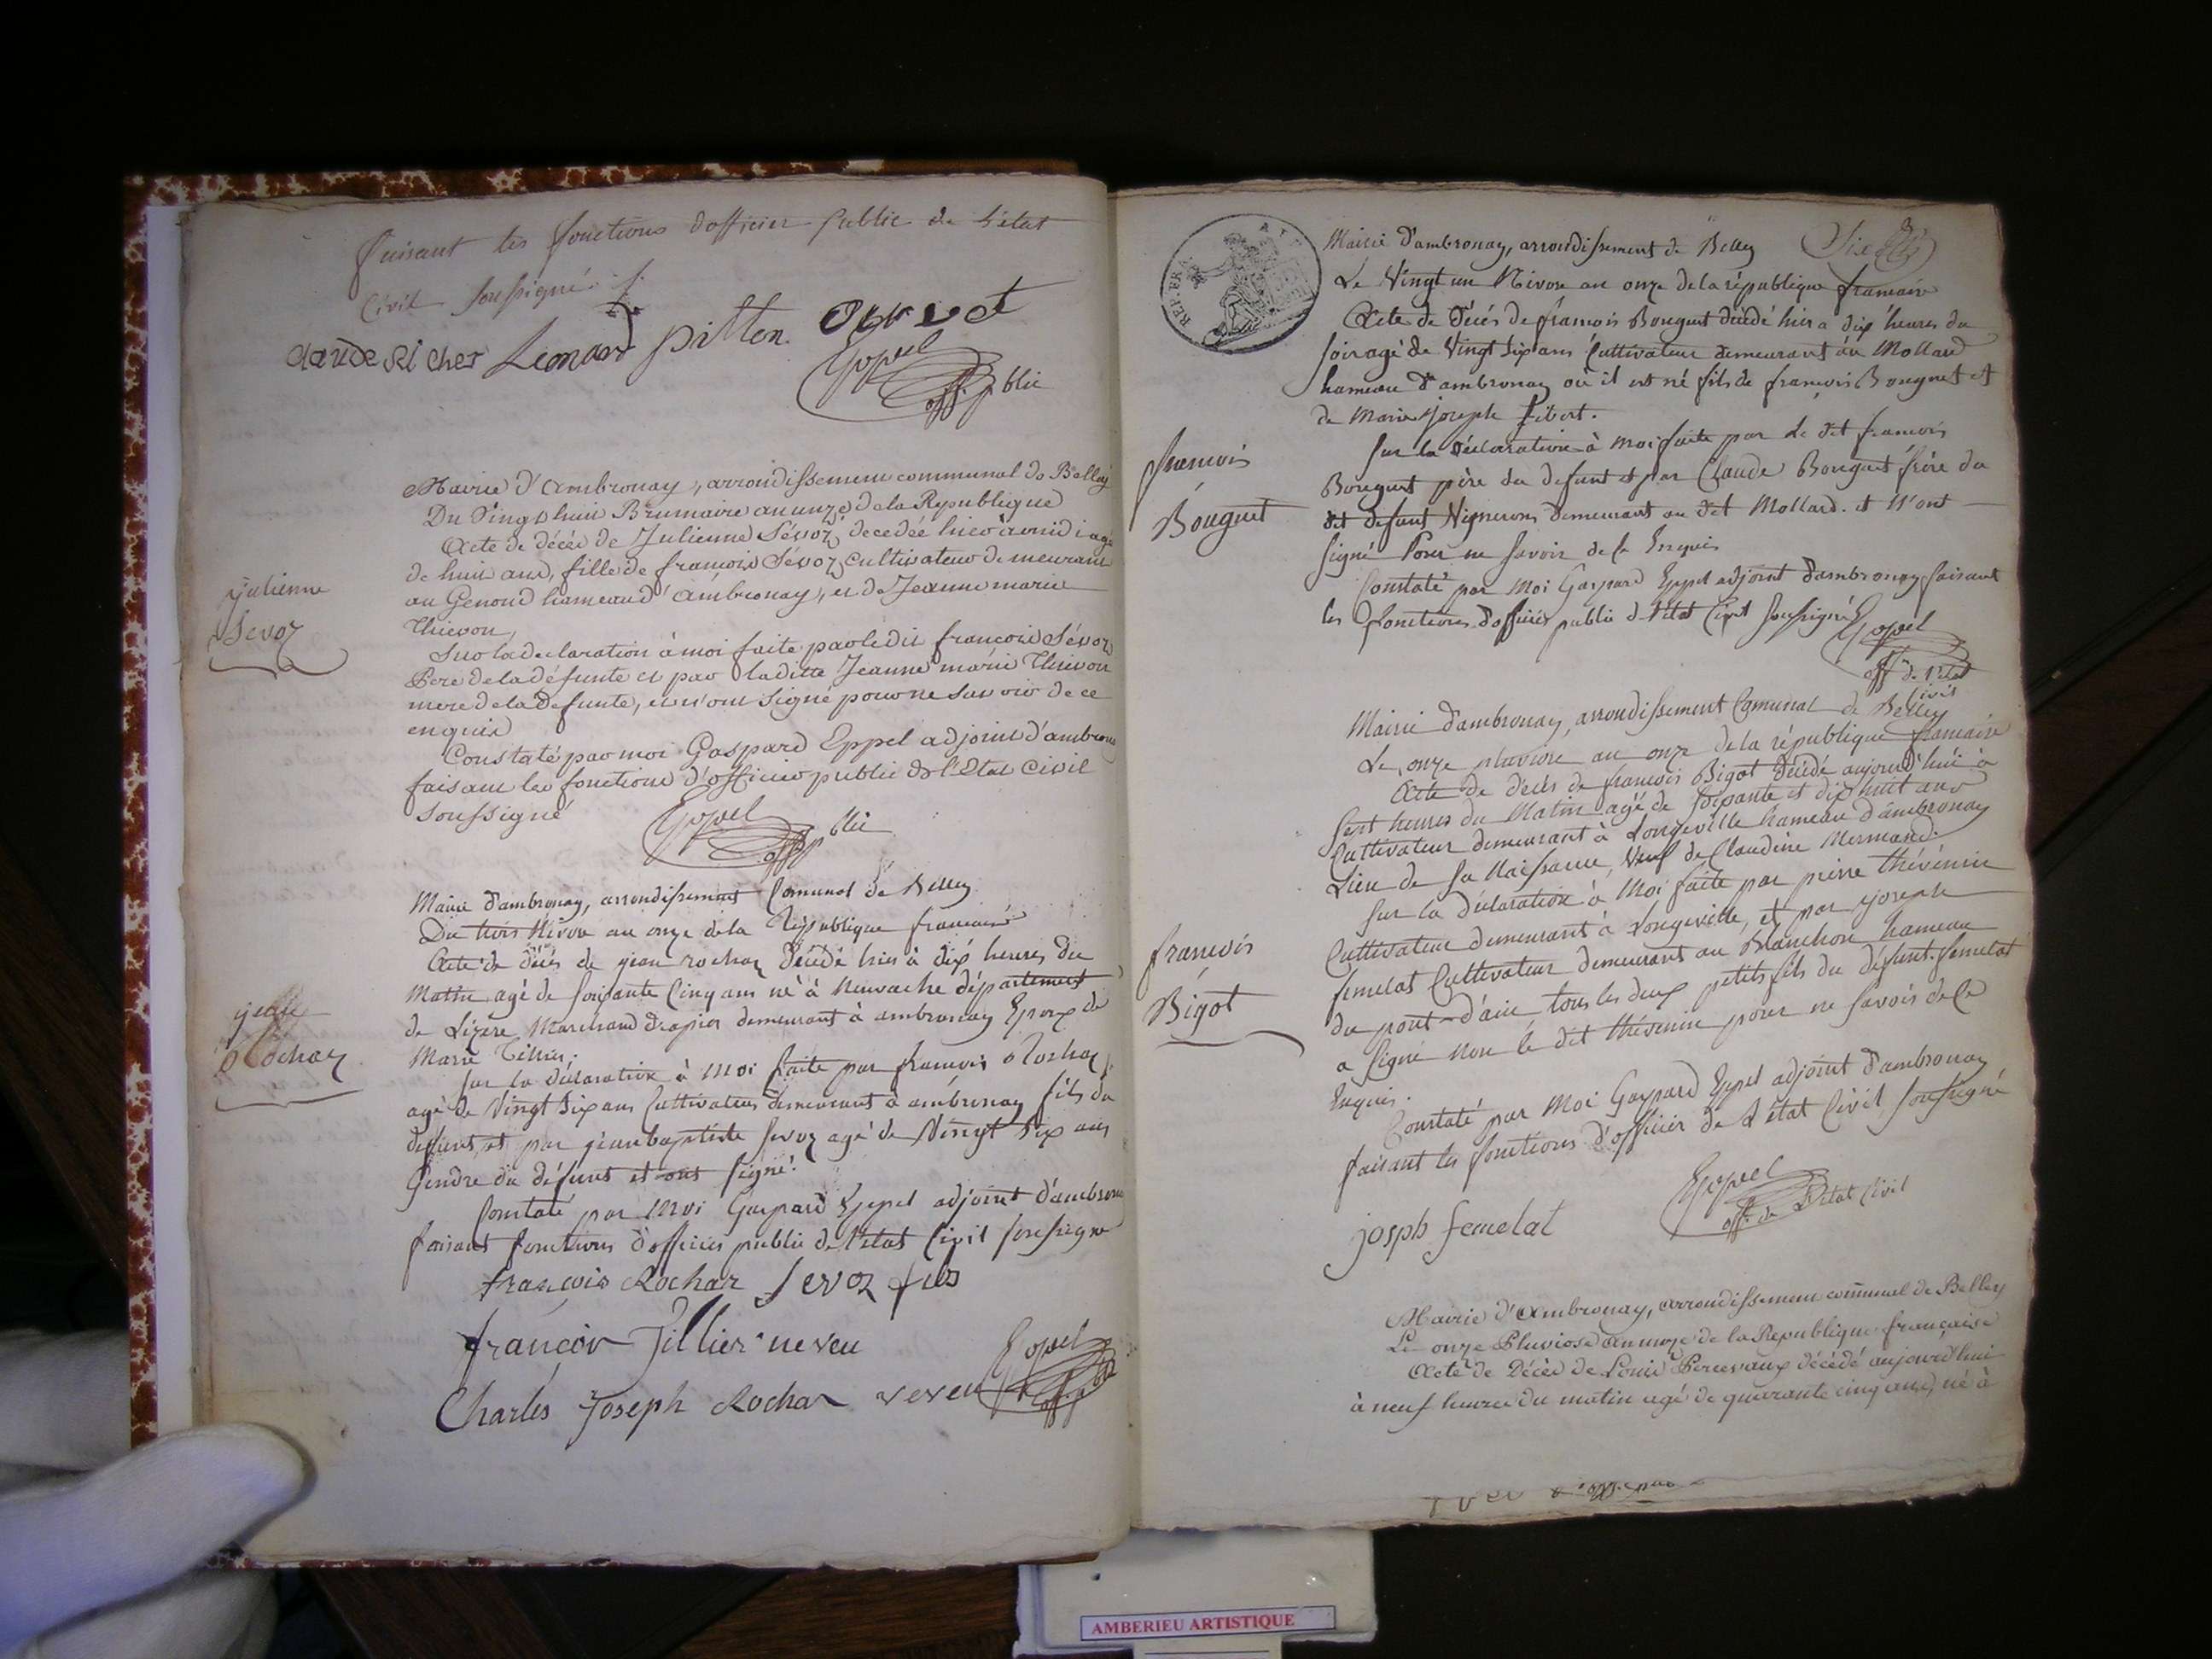 faisant les fonctions d'officier public de l'état
Civil soussigné
claude Richer Leonard pitton
Eppel
off. p. blic
Mairie d'Ambronay, arrondissement communal de Belley
Du Vingt huit Brumaire an onze de la Republique
Acte de décès de Julienne Sévoz, decedée hier à midi agé
de huit ans, fille de françois Sévoz, cultivateur demeurant
au Genoud hameau d'Ambronay, et de Jeanne marie
Thievon,
Sur la declaration à moi faite par le dit françois Sévoz
Pere de la défunte et par la ditte Jeanne marie Thievon
mere de la defunte, et n'ont signé pour ne savoir de ce
enquis
Constaté par moi Gaspard Eppel adjoint d'ambronay
faisant les fonctions d'officier public de l'Etat Civil
soussigné
Eppel
off. p. blic
julienne
Sevoz
Mairie d'ambronay, arrondissement Comunal de Belley
Du trois Nivose an onze de la République francaise
Acte de décès de jean rochaz décédé hier à dix heures du
Matin agé de soixante Cinq ans né à Nevache département
de Lizere Marchand drapier demeurant à ambronay Epoux de
Marie Tillier.
sur la déclaration à moi faite par francois Rochaz
agé de Vingt six ans Cultivateur demeurant à ambronay fils du
deffunt, et par jean baptiste sevoz agé de Vingt six ans
Gendre du défunt et ont signé.
Constaté par moi Gaspard Eppel adjoint d'ambronay
faisant fonctions d'officier public de l'etat Civil soussigné
jean
Rochaz
françois Rochaz Sevoz fils
françois Tillier neveu
Eppel
Charles Joseph Rochaz neveu
Mairie d'ambronay, arrondissement de Belley
Six
Le Vingt un Nivose an onze de la république francaise
Acte de décés de francois Bouguet décédé hier a dix heures du
soir agé de Vingt six ans Cultivateur demeurant au Mollard
hameau d'ambronay où il est né fils de francois Bouguet et
de Marie joseph Gibert.
sur la déclaration à moi faite par le dit francois
Bouguet père du defunt et par Claude Bouguet frère du
dit defunt Vignerons demeurant au dit Mollard. et n'ont
signé Pour ne savoir de ce Enquis
Constaté par moi Gaspard Eppel adjoint d'ambronay faisant
les fonctions d'officier public de l'état Civil soussigné
Eppel
off. de l'état
Civil
francois
Bouguet
Mairie d'ambronay, arrondissement Comunal de Belley
Le onze pluviose an onze de la république francaise
Acte de décès de francois Bigot décédé aujourd'hui à
sept heures du Matin agé de soixante et dix huit ans
Cultivateur demeurant à Longeville hameau d'ambronay
Lieu de sa Naissance, Veuf de Claudine Mermand.
sur la déclaration à Moi faite par pierre thévenin
Cultivateur demeurant à Longeville, et par joseph
femelat Cultivateur demeurant au Blanchon hameau
du pont-d'ain tous les deux petits fils du défunt. femelat
a signé non le dit thévenin pour ne savoir de ce
Enquis.
Constaté par Moi Gaspard Eppel adjoint d'ambronay
faisant les fonctions d'officier de l'état Civil soussigné
francois
Bigot
Eppel
off. de l'état Civil
joseph femelat
Mairie d'Ambronay, arrondissement communal de Belley
Le onze Pluviose an onze de la Republique française
Acte de Décès de Louis Percevaux décédé aujourd'hui
à neuf heures du matin agé de quarante cinq ans, né à
AMBERIEU ARTISTIQUE